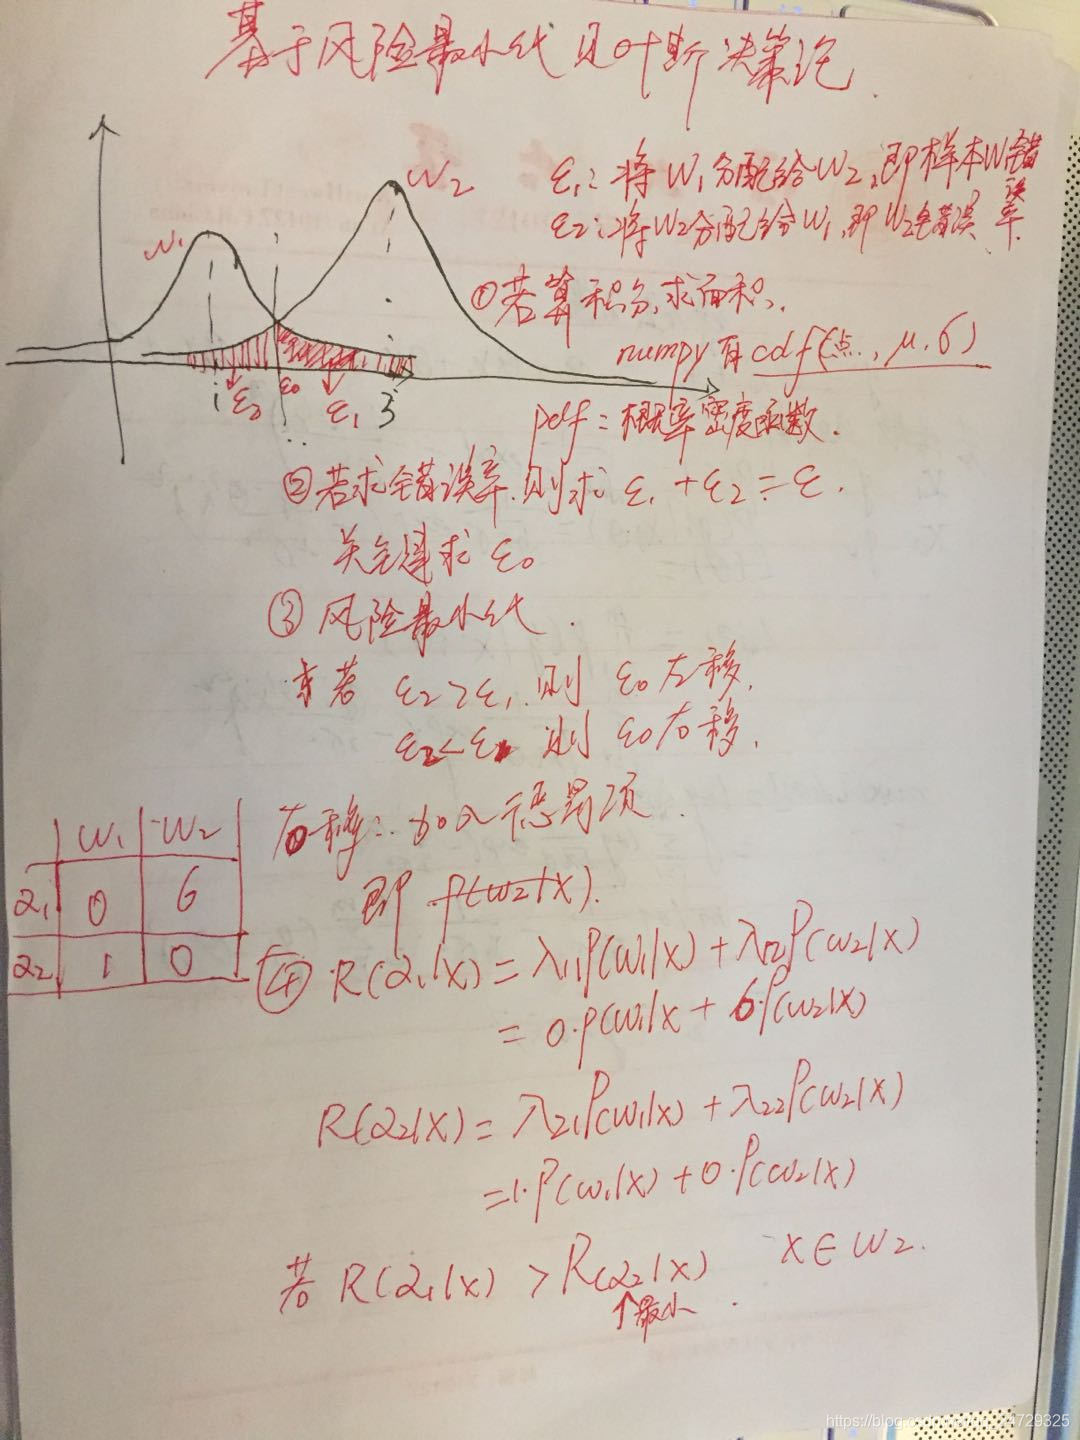 基于风险最小化贝叶斯决策论.
W1
W2
ε1: 将W1分配给W2, 即样本W1错误率
ε2: 将W2分配给W1, 即W2错误率.
①若算积分,求面积.
numpy有cdf(点, μ, 6)
1 ε2 ε0 ε1 3
pdf = 概率密度函数.
②若求错误率,则求 ε1 + ε2 = ε.
关键求 ε0
③ 风险最小化.
若 ε2 > ε1 则 ε0左移.
ε2 < ε1 则 ε0右移.
右移: 加入惩罚项.
即 p(w2|x).
W1 W2
α1 0 6
α2 1 0
④ R(α1|x) = λ11P(w1|x) + λ12P(w2|x)
= 0·P(w1|x + 6·P(w2|x)
R(α2|x) = λ21P(w1|x) + λ22P(w2|x)
=1·P(w1|x) + 0·P(w2|x)
若 R(α1|x) > R(α2|x) x∈w2.
↑最小.